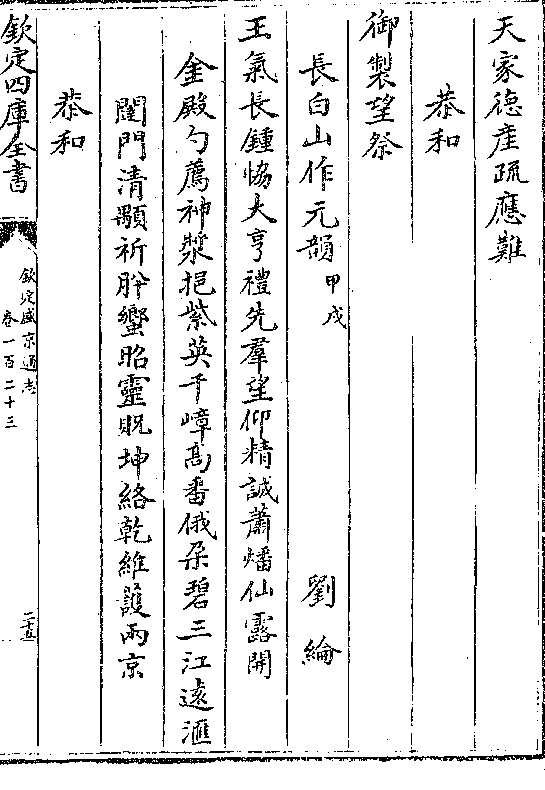 天家德産疏應難
恭和
御製望祭
長白山作元韻甲戌 劉綸
王氣長鍾恊大亨禮先羣望仰精誠蕭燔仙露開
金殿勺薦神漿挹紫英千嶂高番俄朶碧三江遠滙
闥門清顒祈肸蠁昭靈貺坤絡乾維護兩京
恭和
欽定四庫全書
欽定盛京通志
卷一百二十三
二十五